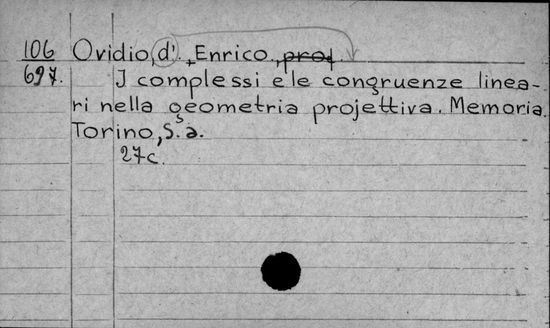 106 Ovidio, d'., Enrico, prof
697. I complessi e le congruenze linea-
ri nella geometria projettiva. Memoria.
Torino, S.a.
27c.